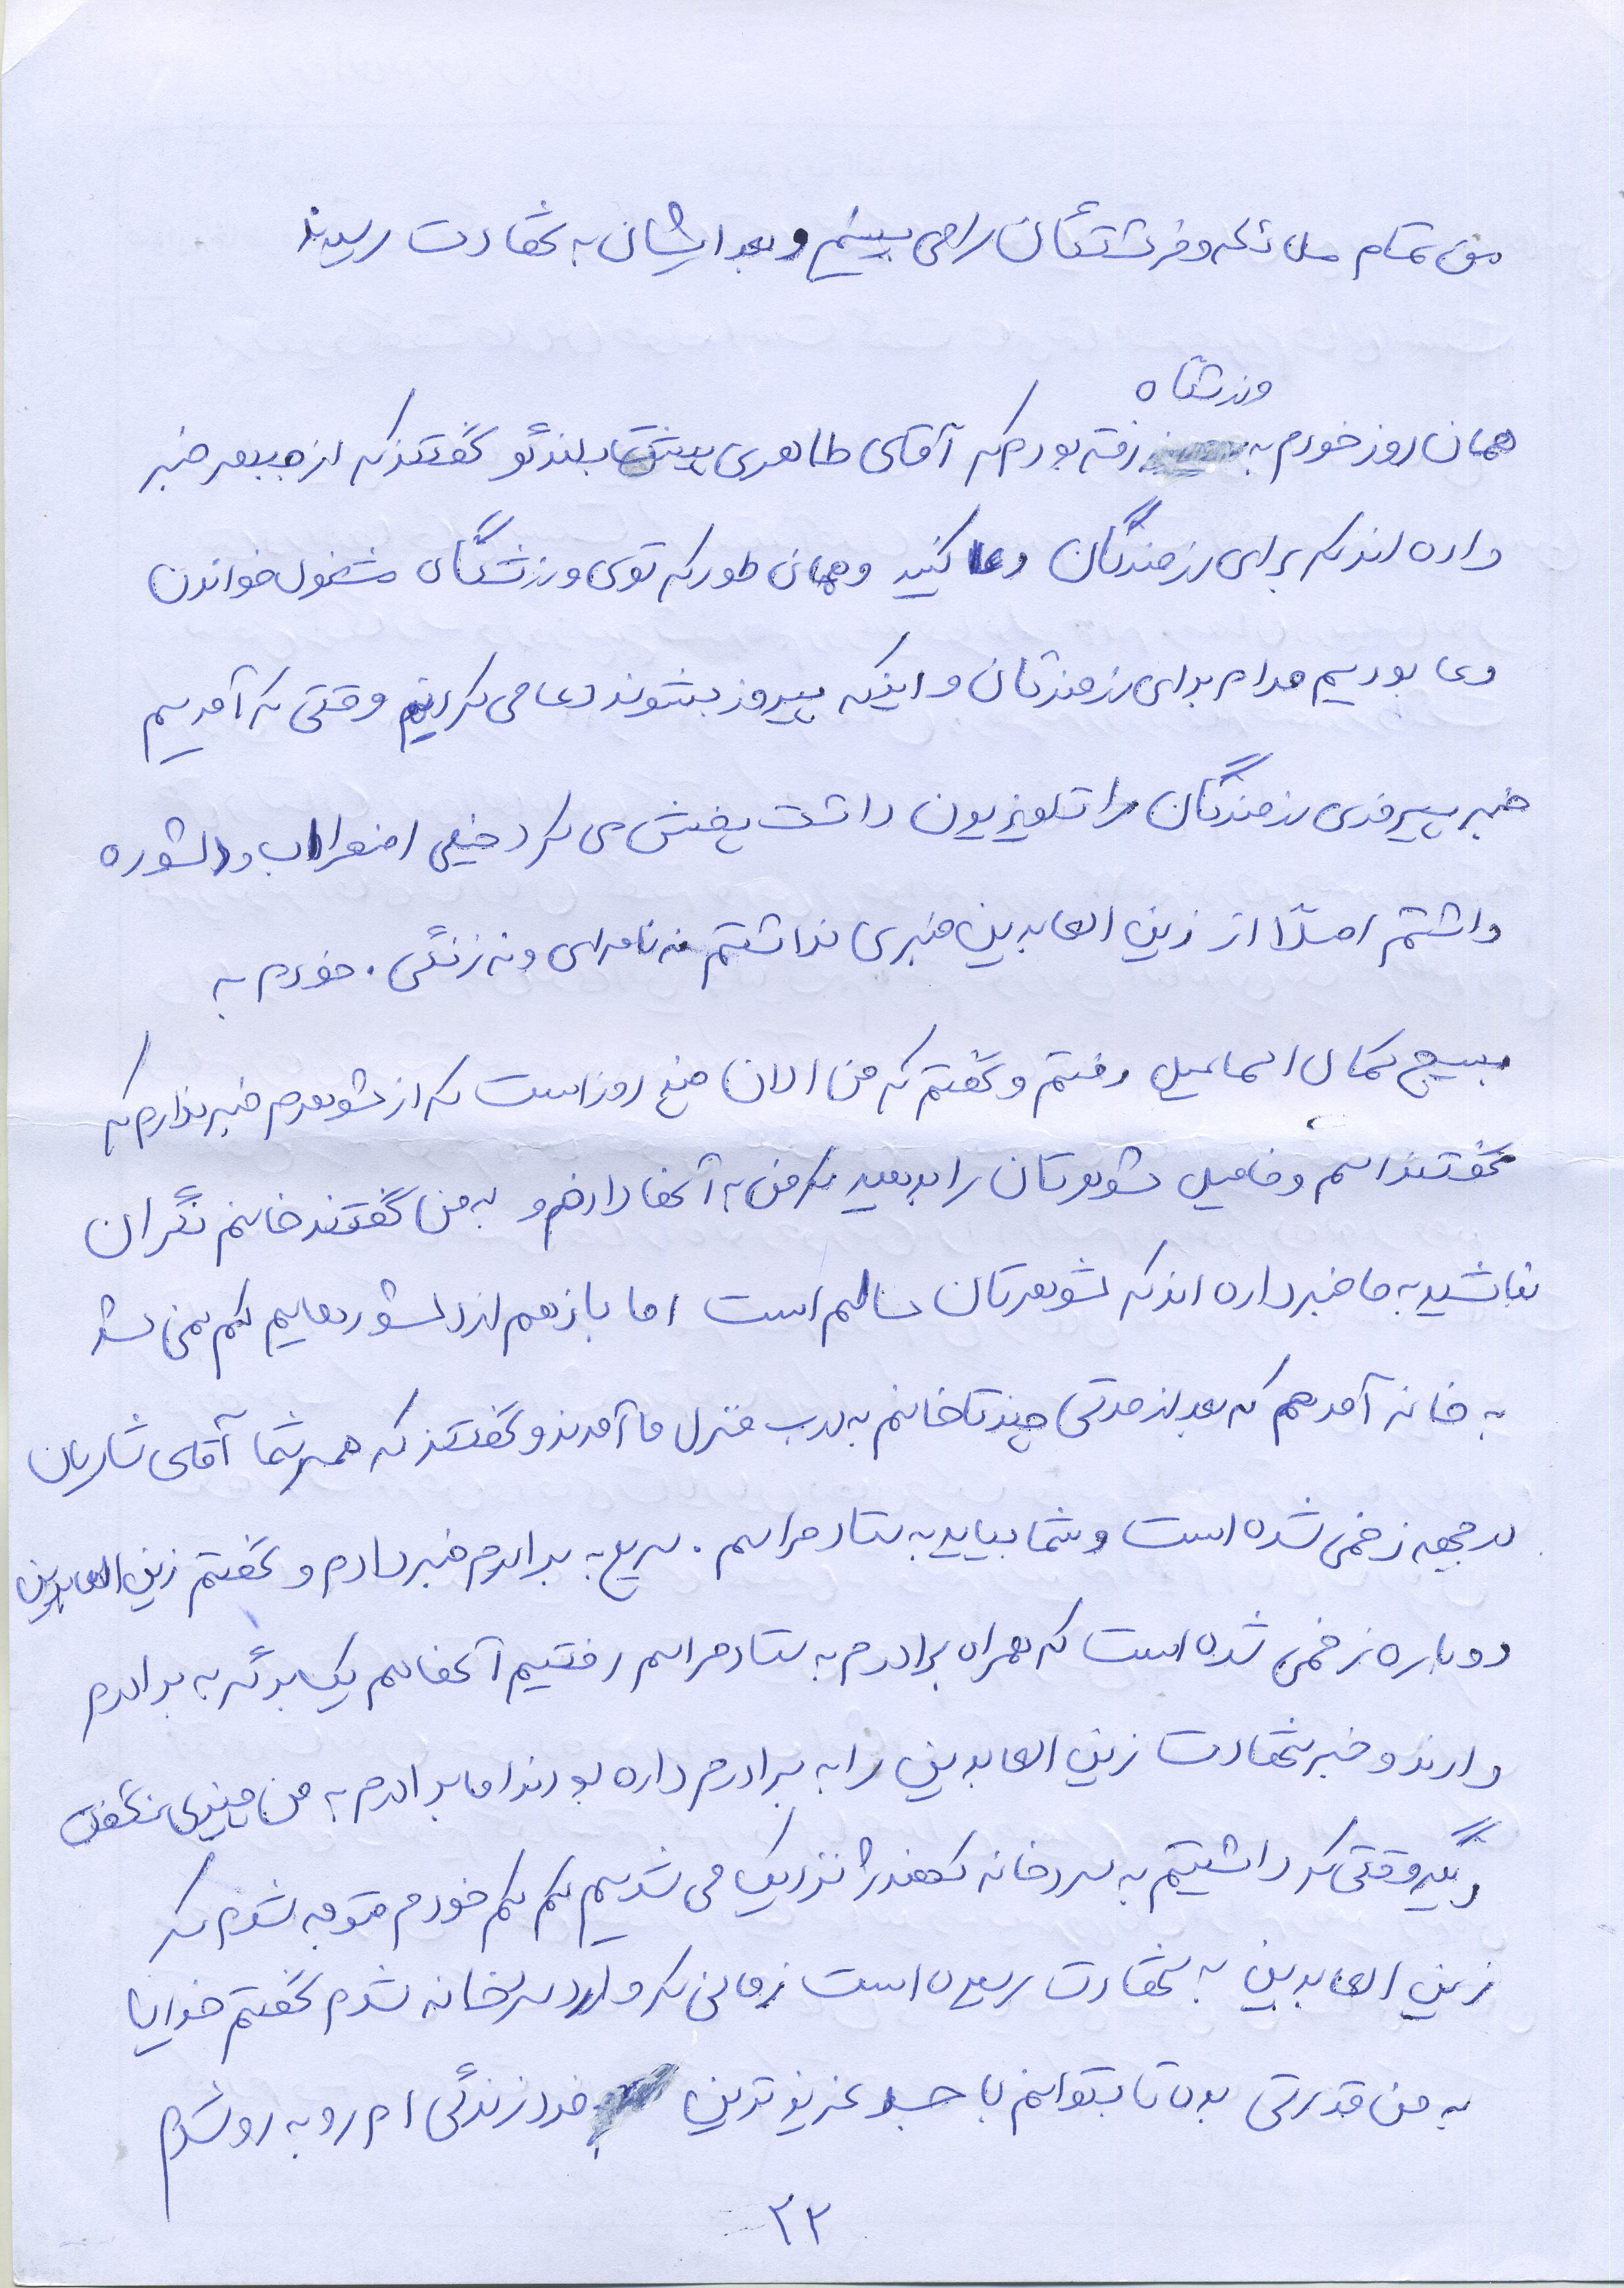 من تمام ملائکه و فرشتگان را می بینم و بعد ایشان به شهادت رسیدند
ورزشگاه
همان روز خودم به رفته بودم که آقای طاهری پشت بلندگو گفتند که از جبهه خبر
داده اند که برای رزمندگان دعا کنید و همان طور که توی ورزشگاه مشغول خواندن
دعا بودیم مدام برای رزمندگان و اینکه پیروز بشوند دعا می کردیم وقتی که آمدیم
خبر پیروزی رزمندگان را تلویزیون داشت پخش می کرد خیلی اضطراب و دلشوره
داشتم اصلاً از زین العابدین خبری نداشتم نه نامه ای و نه زنگی . خودم به
بسیج کمال اسماعیل رفتم و گفتم که من الان پنج روز است که از شوهرم خبر ندارم که
گفتند اسم و فامیل شوهرتان را بدهید که من به آنها دادم و به من گفتند خانم نگران
نباشید به ما خبر داده اند که شوهرتان سالم است اما باز هم از دلشوره هایم کم نمی شد
به خانه آمدم که بعد از مدتی چند تا خانم به درب منزل ما آمدند و گفتند که همسر شما آقای شاریان
در جبهه زخمی شده است و شما بیایید به ستاد مراسم . سریع به برادرم خبر دادم و گفتم زین العابدین
دوباره زخمی شده است که همراه برادرم به ستاد مراسم رفتیم آنها هم یک برگه به برادرم
دادند و خبر شهادت زین العابدین را به برادرم داده بودند اما برادرم به من چیزی نگفت
دیگر وقتی که داشتیم به سردخانه کهندژ نزدیک می شدیم کم کم خودم متوجه شدم که
زین العابدین به شهادت رسیده است زمانی که وارد سردخانه شدم گفتم خدایا
به من قدرتی بده تا بتوانم با جسد عزیزترین فرد زندگی ام رو به رو شوم
۲۳